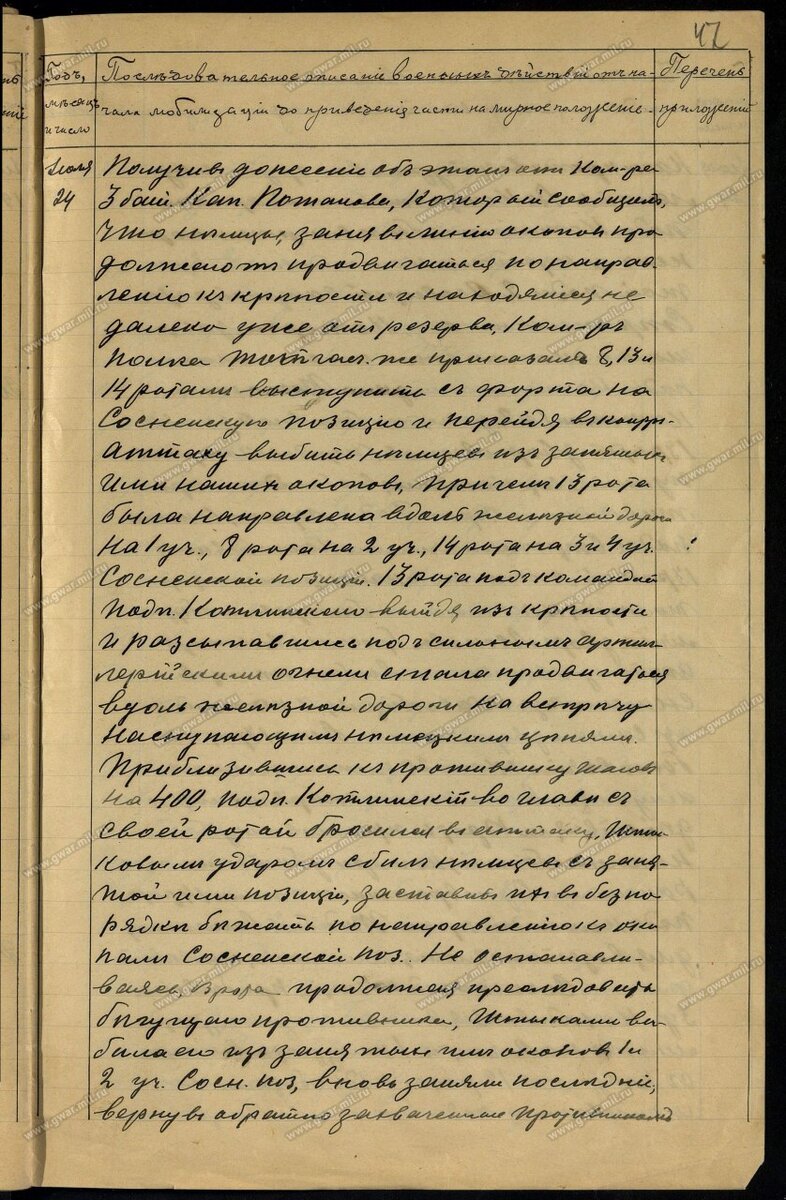 47
Годъ, мѣсяцъ и число
Послѣдовательное описаніе военныхъ дѣйствій отъ на-
чала мобилизаціи до приведенія части на мирное положеніе.
Перечень приложеній
Іюля
24
Получивъ донесеніе объ этомъ отъ Ком-ра
3 бат. Кап. Потапова, который сообщилъ,
что нѣмцы, занявъ линію окоповъ про
должаютъ продвигаться по направ-
ленію къ крѣпости и находятся не
далеко уже отъ резерва, Ком-ръ
полка тотчасъ же приказалъ 8, 13 и
14 ротамъ выступить съ форта на
Сосненскую позицію и перейдя въ контръ-
аттаку выбить нѣмцевъ изъ занятыхъ
ими нашихъ окоповъ, причемъ 13 рота
была направлена вдоль желѣзной дороги
на 1 уч., 8 рота на 2 уч., 14 рота на 3 и 4 уч.
Сосненской позиціи. 13 рота подъ командой
Подп. Котлинскаго выйдя изъ крѣпости
и разсыпавшись подъ сильнымъ артил-
лерійскимъ огнемъ стала продвигаться
вдоль желѣзной дороги на встрѣчу
наступающимъ нѣмецкимъ цѣпямъ.
Приблизившись къ противнику шаговъ
на 400, подп. Котлинскій во главѣ съ
своей ротой бросился въ аттаку. Шты-
ковымъ ударомъ сбилъ нѣмцевъ съ заня-
той ими позиціи, заставивъ ихъ въ безпо
рядкѣ бѣжать по направленію къ око
памъ Сосненской поз. Не останавли-
ваясь 13 рота продолжая преслѣдовать
бѣгущаго противника, штыками вы-
била его изъ занятыхъ имъ окоповъ 1 и
2 уч. Сосн. поз, вновь заняли послѣдній,
вернувъ обратно захваченные противникомъ
www.gwar.mil.ru